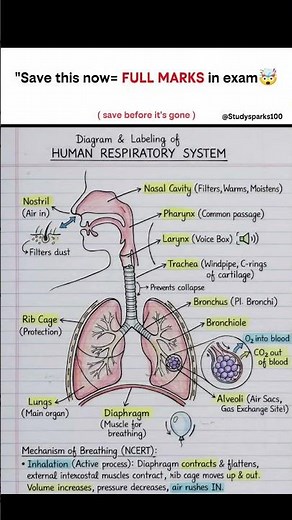 "Save this now= FULL MARKS in exam🤯
( save before it's gone )
@Studysparks100
Diagram & Labeling of
HUMAN RESPIRATORY SYSTEM
Nasal Cavity (Filters, Warms, Moistens)
Nostril
(Air in)
Pharynx (Common passage)
Larynx (Voice Box)
Filters dust
Trachea (Windpipe, C-rings
of cartilage)
Prevents collapse
Bronchus (Pl. Bronchi)
Rib Cage
(Protection)
Bronchiole
O₂ into blood
CO₂ out
of blood
Lungs
(Main organ)
Diaphragm
(Muscle for
breathing)
Alveoli (Air Sacs,
Gas Exchange Site)
Mechanism of Breathing (NCERT):
• Inhalation (Active process): Diaphragm contracts & flattens,
external intercostal muscles contract, rib cage moves up & out.
Volume increases, pressure decreases, air rushes IN.